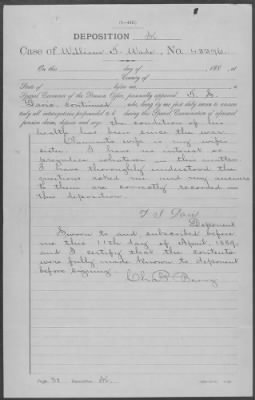 DEPOSITION
Case of William T. Wade, No. 43376
On this day of 188 , at
County of
State of before me,
Special Examiner of the Pension Office, personally appeared
Davis, continued, who, being by me first duly sworn to answer
truly all interrogatories propounded to h during this Special Examination of aforesaid
pension claim, deposes and says: the condition of his
health has been since the war.
Claimant's wife is my wife's
sister. I have no interest or
prejudice whatever in this matter.
I have thoroughly understood the
questions asked me and my answers
to them are correctly recorded in
this deposition.
Davis
Deponent
Sworn to and subscribed before
me this 11th day of April, 1889,
and I certify that the contents
were fully made known to deponent
before signing.
Page Deposition